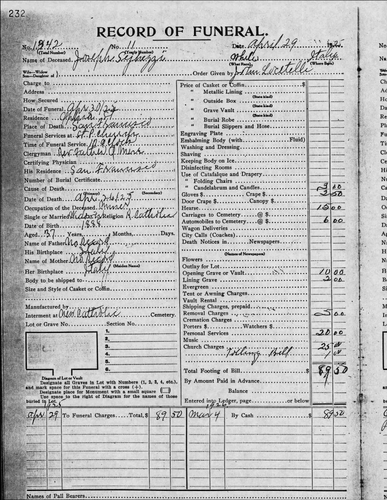 232
RECORD OF FUNERAL.
No. 1342 No. 11 Date April 29 1925
(Total Number) (Yearly Number)
Name of Deceased Joseph White Italy
Order Given by John Locatelli
Charge to
Address
How Secured
Date of Funeral Apr 30/25
Residence
Place of Death San Francisco
Funeral Services at S.P. Church
Time of Funeral Service 10 o'clock
Clergyman Rev Father O'Mere
Certifying Physician
His Residence San Francisco
Number of Burial Certificate
Cause of Death
Date of Death Apr 26 1925
Occupation of the Deceased
Single or Married Religion R. Catholic
Date of Birth 1888
Aged 37 Years, Months, Days.
Name of Father No Record
His Birthplace Italy
Name of Mother No Record
Her Birthplace Italy
(Maiden Name)
Body to be shipped to
Size and Style of Casket or Coffin
Manufactured by
Interment at New Catholic Cemetery.
Lot or Grave No. Section No.
1
2
3
4
5
6
Diagram of Lot or Vault
Designate all Graves in Lot with Numbers (1, 2, 3, 4, etc.), and mark space for this Funeral with a cross (+).
Designate place for Monument with a small square
Use space to the right of Diagram for the names of those buried in Lot.
Price of Casket or Coffin
" Metallic Lining
" Outside Box
" Grave Vault
" Burial Robe
" Burial Slippers and Hose
Engraving Plate
Embalming Body (with Fluid)
Washing and Dressing
Shaving
Keeping Body on Ice
Disinfecting Rooms
Use of Catafalque and Drapery
" Folding Chairs
" Candelabrum and Candles
Gloves
Door Crape
Hearse
Carriages to Cemetery @ $
Automobiles to Cemetery @ $ 6 00
Wagon Deliveries
City Calls (Coaches)
Death Notices in Newspapers
(Names of Newspapers)
Flowers
Outlay for Lot
Opening Grave or Vault 10 00
Lining Grave 2 00
Evergreen
Tent or Awning Charges
Vault Rental
Shipping Charges, prepaid
Removal Charges 5 00
Cremation Charges
Porters $ Watchers $
Personal Services 20 00
Music
Church Charges 25 00
Tolling Bell
Total Footing of Bill $ 89 50
By Amount Paid in Advance
Balance
Entered into Ledger, page or below.
1925
Apr 29 To Funeral Charges Total, $ 89 50 Mar 4 By Cash 89 50
Names of Pall Bearers